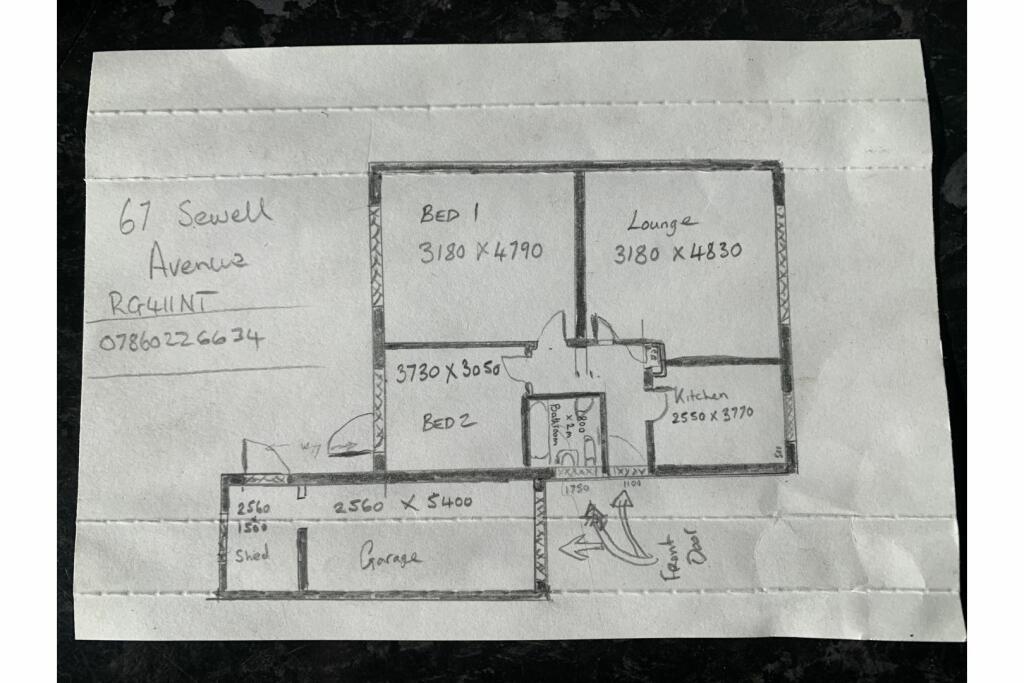 67 Sewell
Avenue
RG41 1NT
07860226634
BED 1
3180 X 4790
Lounge
3180 X 4830
3730 X 3050
BED 2
Kitchen
2550 X 3770
Bathroom
1800
X 2m
1750
1100
500
2560
X
1500
Shed
2560 X 5400
Garage
Front
Door